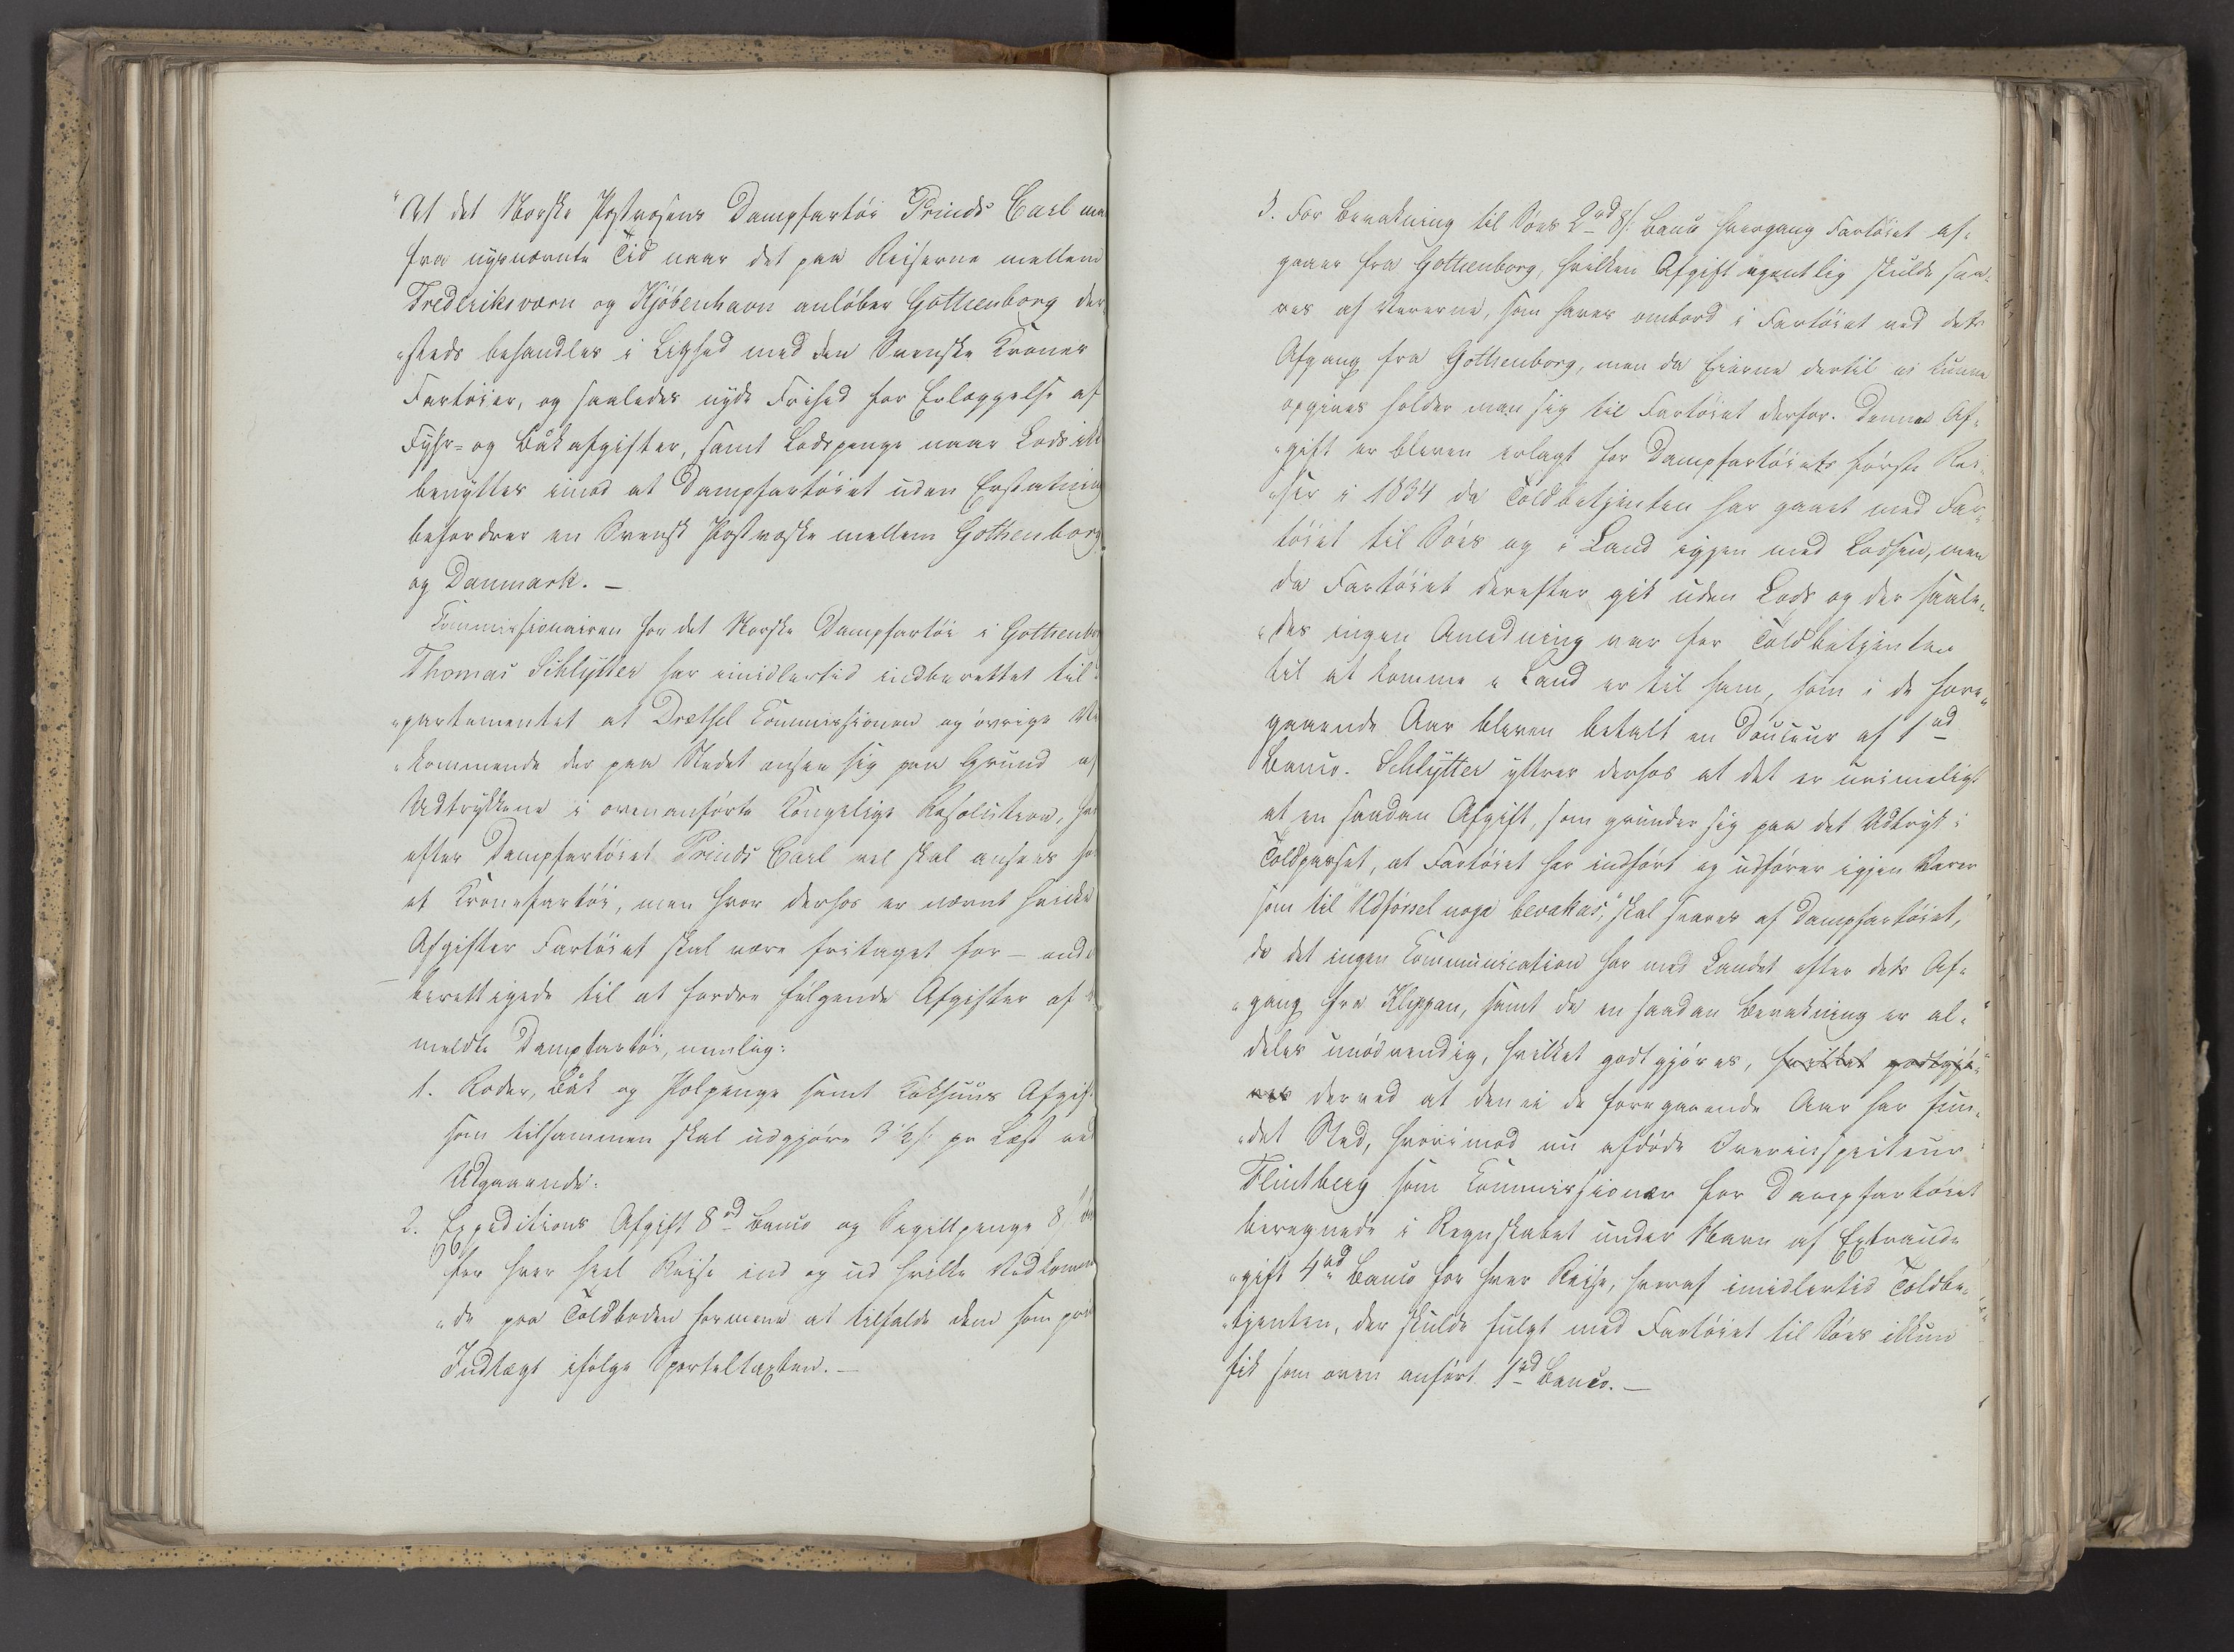 "At det Norske Postvæsens Dampfartöi Prinds Carl maa
fra nysnævnte Tid naar det paa Reiserne mellem
Frederiksværn og Kjöbenhavn anlöber Gothenborg der
"steds behandles i Lighed med den Svenske Krones
Fartöier, og saaledes nyde Frihed for Erlæggelse af
Fyhr- og Båkafgifter, samt Lodspenge naar Lods ikke
benyttes imod at Dampfartöiet uden Erstatning
befordrer en Svensk Postvæske mellem Gothenborg
og Danmark. –
Commissionairen for det Norske Dampfartöi i Gothenbor
Thomas Schlytter har imidlertid indberettet til
"partementet at Drætsel Commissionen og övrige Ve
"kommende der paa Stedet ansee sig paa Grund af
Udtrykkene i ovenanförte Kongelige Resolution, hvor
efter Dampfartöiet Prinds Carl vel skal ansees som
et Kronefartöi, men hvor derhos er nævnt hvilke
Afgifter Fartöiet skal være fritaget for – end
berettigede til at fordre fölgende Afgifter af
meldte Dampfartöi, nemlig:
1. Roder, Båk og Polpenge samt Afgift
som tilsammen skal udgjöre 3 1/2 s. pr Læst ved
Udgaaende.
2. Expeditions Afgift 8 rd Banco og Sigillpenge 8
for hver heel Reise ind og ud hvilke Vedkommen
"de paa Toldboden formene at tilfalde dem som pri
Indtægt ifölge Sporteltaxten. –
3. For Bevakning til Söes 2 rd 8 s. Banco hvergang Fartöiet af"
gaaer fra Gothenborg, hvilken Afgift egentlig skulde sva"
res af Varerne, som haves ombord i Fartöiet ved dets
Afgang fra Gothenborg, men da Eierne dertil ei kunne
opgives holder man sig til Fartöiet derfor. Denne Af"
"gift er bleven erlagt for Dampfartöiets förste Rei"
"ser i 1834 da Toldbetjenten har gaaet med Far"
töiet til Söes og i Land igjen med Lodsen, men
da Fartöiet derefter gik uden Lods og der saale"
"des ingen Anledning var for Toldbetjenten
til at komme i Land er til ham, som i de fore"
gaaende Aar bleven betalt en Douceur af 1 rd
Banco. Schlytter yttrer derhos at det er urimeligt
at en saadan Afgift, som grunder sig paa det Udtryk i
Toldpasset, at Fartöiet har indfört og udförer igjen Varer
som til "Utförsel noga bevakas," skal svares af Dampfartöiet,
da det ingen Communication har med Landet efter dets Af"
"gang fra Klippan, samt da en saadan Bevakning er al"
deles unödvendig, hvilket godtgjöres, hvilket godtgjö"
res derved at den ei de foregaaende Aar har fun"
"det Sted, hvorimod nu afdöde Overinspecteur
Flintberg som Commissionær for Dampfartöiet
beregnede i Regnskabet under Navn af Extraud
"gift 4 rd Banco for hver Reise, hvoraf imidlertid Toldbe"
"tjenten, der skulde fulgt med Fartöiet til Söes ikkun
fik som oven anfört 1 rd Banco. –